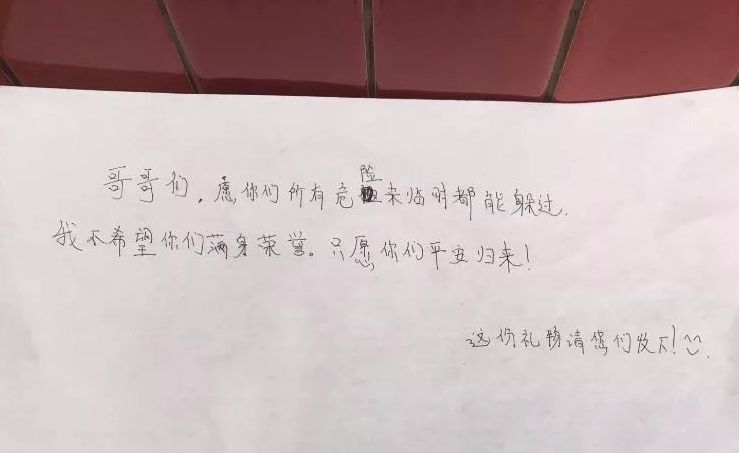 哥哥们，愿你们所有危险来临时都能躲过.
我不希望你们满身荣誉。只愿你们平安归来!
这份礼物请您们收下!